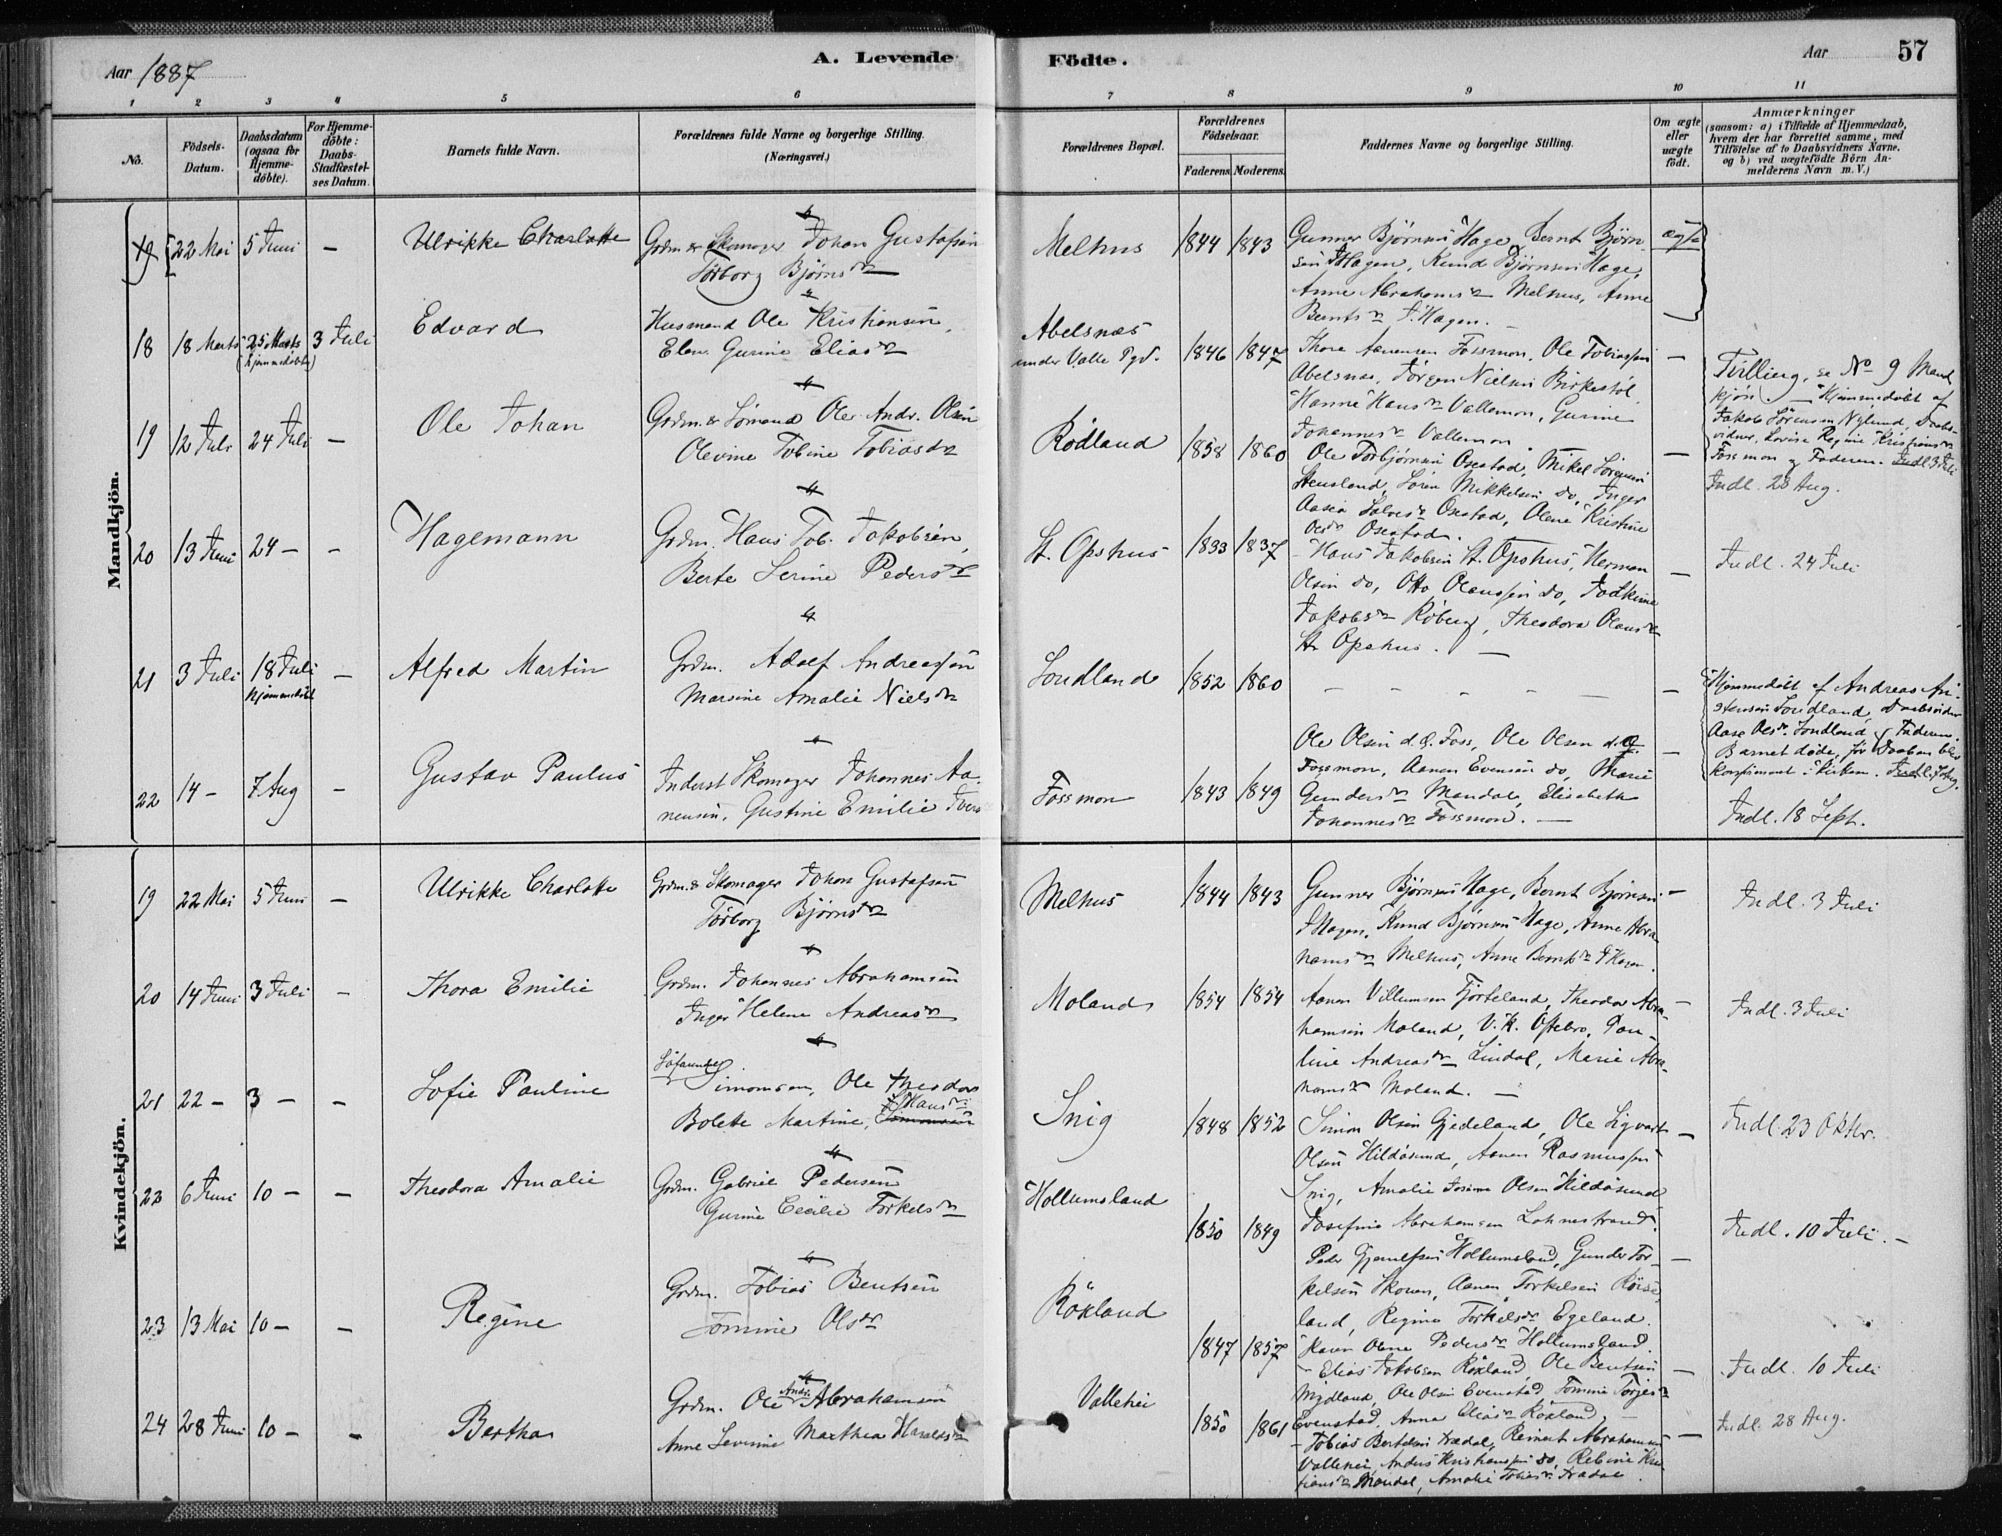 Aar 1887
A. Levende
Födte.
Aar
57
1 2 3 4 5 6 7 8 9 10 11
No.
Födsels-Datum.
Daabsdatum (ogsaa for Hjemme-döbte).
For Hjemme-döbte: Daabs-Stadfæstel-ses Datum.
Barnets fulde Navn.
Forældrenes fulde Navne og borgerlige Stilling. (Næringsvei.)
Forældrenes Bopæl.
Forældrenes Födselsaar.
Faderens Moderens
Faddernes Navne og borgerlige Stilling.
Om ægte eller uægte födt.
Anmærkninger
(saasom: a) i Tilfælde af Hjemmedaab,
hvem der har forrettet samme, med
Tilföielse af to Daabsvidners Navne,
og b) ved uægtefödte Börn An-
melderens Navn m. V.)
Mandkjön.
19 22 Mai 5 Juni – Ulrikke Charlotte
Grdm. & Skomager Johan Gustafsen
Torborg Bjørnsdr
Melhus 1844 1843
Gunner Bjørnsen Hage, Bernt Bjørn-
sen Hagen, Knud Bjørnsen Hage,
Anne Abrahamsdr Melhus, Anne
Berntsdr Hagen. –
ægte
18 18 Marts 25 Marts (hjemmedøbt) 3 Juli Edvard
Husmand Ole Kristiansen,
Elen Gurine Eliasdr
Abelsnæs
under Valle Pgd. 1846 1847
Thore Aanensen Fossmon, Ole Tobiassen
Abelsnæs, Jørgen Nielsen Birkestøl
Hanne Hansdr Vallemon, Gurine
Johannesdr Vallemon
–
Tvilling, se No 9 Mand
kjøn. – Hjemmedøbt af
Jakob Sörensen Nylund, Daabs-
vidner, Lovise Regine Kristiansdr
Fossmon og Faderen. Indl. 3 Juli
19 12 Juli 24 Juli – Ole Johan
Grdm. & Sömand Ole Andr. Olsen
Olevine Tobine Tobiasdr
Rödland 1858 1860
Ole Torbjørnsen Osestad, Mikal Sörensen
Stensland, Sören Mikkelsen do, Inger
Aasea Salvesdr Osestad, Olene Kristine
Olsdr Osestad.
–
Indl. 28 Aug.
20 13 Juni 24 – – Hagemann
Grdm. Hans Tob. Jakobsen,
Berte Serine Pedersdr
St. Opshus 1833 1837
Hans Jakobsen St. Opshus, Herman
Olsen do, Otto Olaussen do,
Jakobsdr Röberg, Theodora Olausdr
St. Opshus. –
–
Indl. 24 Juli
21 3 Juli 18 Juli hjemmedöbt – Alfred Martin
Grdm. Adolf Andreassen
Marsine Amalie Nielsdr
Sondland 1852 1860
– – – – – –
Hjemmedøbt af Andreas
Sondland, Daabsvidner
Aase Olsdr Sondland & Faderen.
Barnet døde, før Daaben blev
konfirmeret i Kirken.
22 14 – 7 Aug – Gustav Paulus
Inderst Skomager Johannes Aa-
nensen, Gustine Emilie
Fossmon 1843 1849
Ole Olsen d.Æ. Foss, Ole Olsen
Fossmon, Aanen Evensen do, Marie
Gundersdr Mandal, Elisabeth
Johannesdr Fossmon. –
–
Indl. 18 Sept.
Kvindekjön.
19 22 Mai 5 Juni – Ulrikke Charlotte
Grdm. & Skomager Johan Gustafsen
Torborg Bjørnsdr
Melhus 1844 1843
Gunner Bjørnsen Hage, Bernt Bjørnsen
Hagen, Knud Bjørnsen Hage, Anne Abra-
hamsdr Melhus, Anne Berntsdr Hagen.
–
Indl. 3 Juli
20 14 Juni 3 Juli – Thora Emilie
Grdm. Johannes Abrahamsen
Inger Helene Andreasdr
Moland 1854 1854
Aanen Villumsen Fjorteland, Theodor Abra-
hamsen Moland, V. K. Oftebro, Pau-
line Andreasdr Lindal, Marie Abra-
hamsdr Moland. –
–
Indl. 3 Juli
21 22 – 3 – – Sofie Pauline
Simonsen, Ole Theodor
Bolette Martine, Hansdr
Snig 1848 1852
Simon Olsen Gjedeland, Ole Sigvart
Olsen Hildøsund, Aanen Rasmussen
Snig, Amalie Olsen Hildøsund
Josefine Abrahamsen Lohnestrand.
–
Indl. 23 Oktbr.
22 6 Juni 10 – – Theodora Amalie
Grdm. Gabriel Pedersen
Gurine Cecilie Torkelsdr
Hollumsland 1850 1849
Peder Hollumsland, Gunder Tor-
kelsen Skouen, Aanen Torkelsen
land, Regine Torkelsdr Egeland.
Karen Olene Pedersdr Hollumsland.
–
Indl. 10 Juli. –
23 13 Mai 10 – – Regine
Grdm. Tobias Bentsen
Tomine Olsdr
Röxland 1847 1857
Elias Jakobsen Röxland, Ole Bentsen
Mydland, Ole Olsen Evenstad, Tomine Torjesdr
Evenstad, Anna Eliasdr Röxland –
–
Indl. 10 Juli
24 28 Juni 10 – – Bertha
Grdm. Ole Andr. Abrahamsen
Anne Severine Marthea Haraldsdr
Vallehei 1850 1861
Tobias Bertelsen Trædal, Reinert Abrahamsen
Vallehei, Anders Kristiansen do, Rebine Kri-
stiansdr Mandal, Amalie Tobiasdr Trædal.
–
Indl. 28 Aug.